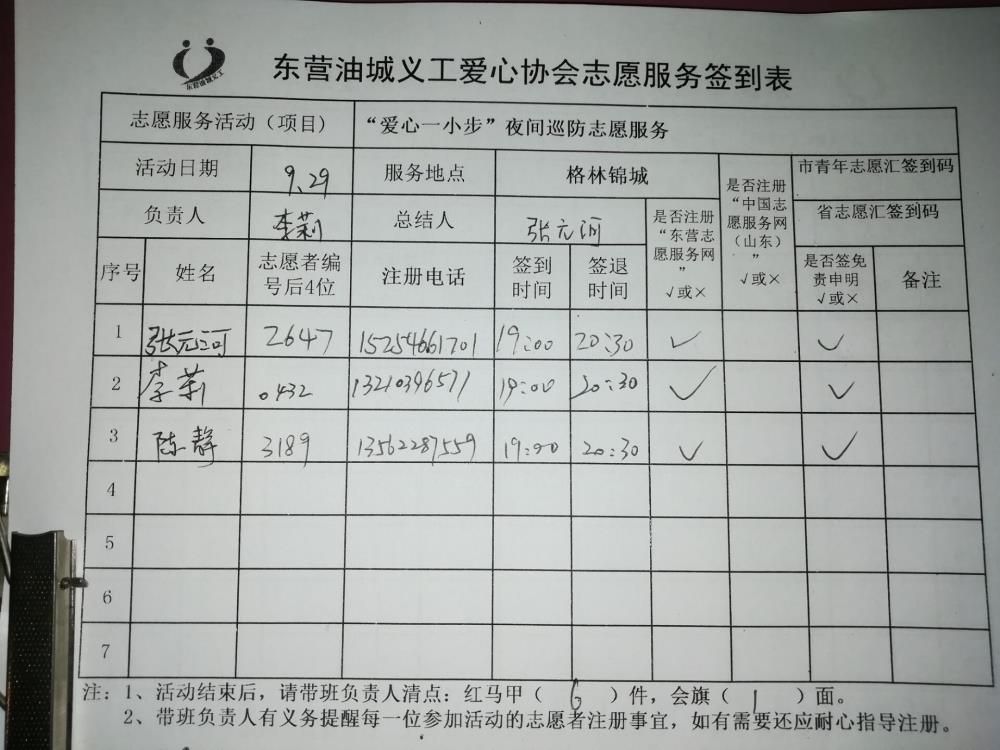 东营油城义工
东营油城义工爱心协会志愿服务签到表
志愿服务活动（项目） “爱心一小步”夜间巡防志愿服务
活动日期 9.29 服务地点 格林锦城 是否注册“中国志愿服务网（山东）” √或× 市青年志愿汇签到码
负责人 李莉 总结人 张元河 是否注册“东营志愿服务网” √或× 省志愿汇签到码
序号 姓名 志愿者编号后4位 注册电话 签到时间 签退时间 是否签免责申明 √或× 备注
1 张元河 2647 15254661701 19:00 20:30 ✓ ✓
2 李莉 0432 13210396571 19:00 20:30 ✓ ✓
3 陈静 3189 13562287559 19:00 20:30 ✓ ✓
4
5
6
7
注：1、活动结束后，请带班负责人清点：红马甲（ 6 ）件，会旗（ 1 ）面。
2、带班负责人有义务提醒每一位参加活动的志愿者注册事宜，如有需要还应耐心指导注册。